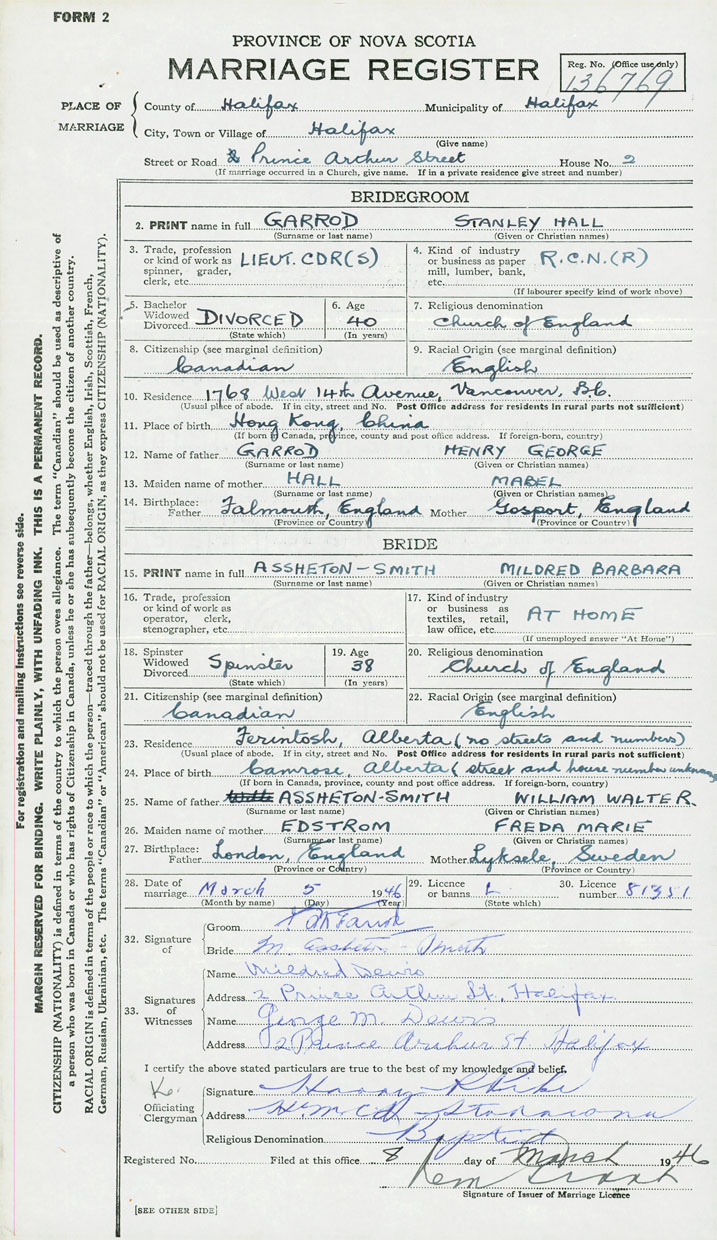 FORM 2
PROVINCE OF NOVA SCOTIA
MARRIAGE REGISTER
Reg. No. (Office use only)
136769
PLACE OF MARRIAGE
County of Halifax Municipality of Halifax
City, Town or Village of Halifax
(Give name)
Street or Road 2 Prince Arthur Street House No. 2
(If marriage occurred in a Church, give name. If in a private residence give street and number)
BRIDEGROOM
2. PRINT name in full GARROD STANLEY HALL
(Surname or last name) (Given or Christian names)
3. Trade, profession or kind of work as spinner, grader, clerk, etc. LIEUT. CDR(S)
4. Kind of industry or business as paper mill, lumber, bank, etc. R.C.N.(R)
(If labourer specify kind of work above)
5. Bachelor Widowed Divorced DIVORCED
(State which)
6. Age 40
(In years)
7. Religious denomination
Church of England
8. Citizenship (see marginal definition)
Canadian
9. Racial Origin (see marginal definition)
English
10. Residence 1768 West 14th Avenue, Vancouver, B.C.
(Usual place of abode. If in city, street and No. Post Office address for residents in rural parts not sufficient)
11. Place of birth Hong Kong, China
(If born in Canada, province, county and post office address. If foreign-born, country)
12. Name of father GARROD HENRY GEORGE
(Surname or last name) (Given or Christian names)
13. Maiden name of mother HALL MABEL
(Surname or last name) (Given or Christian names)
14. Birthplace: Father Falmouth, England Mother Gosport, England
(Province or Country) (Province or Country)
BRIDE
15. PRINT name in full ASSHETON-SMITH MILDRED BARBARA
(Surname or last name) (Given or Christian names)
16. Trade, profession or kind of work as operator, clerk, stenographer, etc.
17. Kind of industry or business as textiles, retail, law office, etc. AT HOME
(If unemployed answer "At Home")
18. Spinster Widowed Divorced Spinster
(State which)
19. Age 38
(In years)
20. Religious denomination
Church of England
21. Citizenship (see marginal definition)
Canadian
22. Racial Origin (see marginal definition)
English
23. Residence Ferintosh, Alberta (no streets and numbers)
(Usual place of abode. If in city, street and No. Post Office address for residents in rural parts not sufficient)
24. Place of birth Camrose, Alberta (street and house number unknown
(If born in Canada, province, county and post office address. If foreign-born, country)
25. Name of father ASSHETON-SMITH WILLIAM WALTER.
(Surname or last name) (Given or Christian names)
26. Maiden name of mother EDSTROM FREDA MARIE
(Surname or last name) (Given or Christian names)
27. Birthplace: Father London, England Mother Lyksele, Sweden
(Province or Country) (Province or Country)
28. Date of marriage March 5 1946
(Month by name) (Day) (Year)
29. Licence or banns L
(State which)
30. Licence number 81351
32. Signature of
Groom
Bride M. Assheton-Smith
33. Signatures of Witnesses
Name Mildred Dewis
Address 2 Prince Arthur St., Halifax
Name George M. Dewis
Address 2 Prince Arthur St Halifax
I certify the above stated particulars are to the best of my knowledge and belief.
Officiating Clergyman
Signature Harry
Address H.M.C.S. Stadacona
Religious Denomination Baptist
Registered No. Filed at this office 8 day of March 1946
Signature of Issuer of Marriage Licence
[SEE OTHER SIDE]
For registration and mailing instructions see reverse side.
MARGIN RESERVED FOR BINDING. WRITE PLAINLY, WITH UNFADING INK. THIS IS A PERMANENT RECORD.
CITIZENSHIP (NATIONALITY) is defined in terms of the country to which the person owes allegiance. The term "Canadian" should be used as descriptive of
a person who was born in Canada or who has rights of Citizenship in Canada, unless he or she has subsequently become the citizen of another country.
RACIAL ORIGIN is defined in terms of the people or race to which the person—traced through the father—belongs, whether English, Irish, Scottish, French,
German, Russian, Ukrainian, etc. The terms "Canadian" or "American" should not be used for RACIAL ORIGIN, as they express CITIZENSHIP (NATIONALITY).